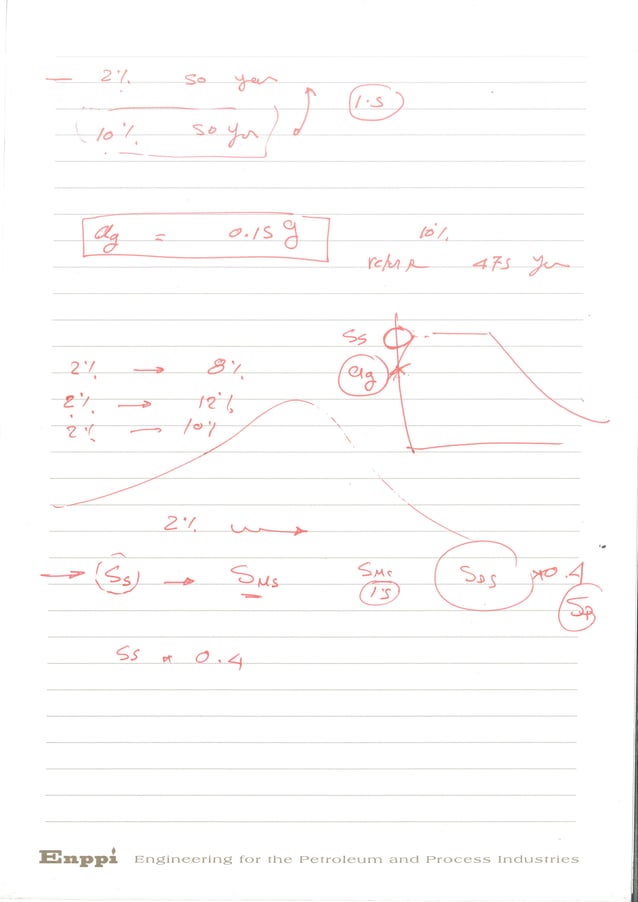 — 2% 50 year
10% 50 yr 1.5
ag = 0.15 g
10%
return 475 year
Ss
ag
2% → 8%
2% → 12%
2% — 10%
2% →
→ (Ss) → SMS SMS/1.5 SDS *0.4
Ss * 0.4
Enppi Engineering for the Petroleum and Process Industries